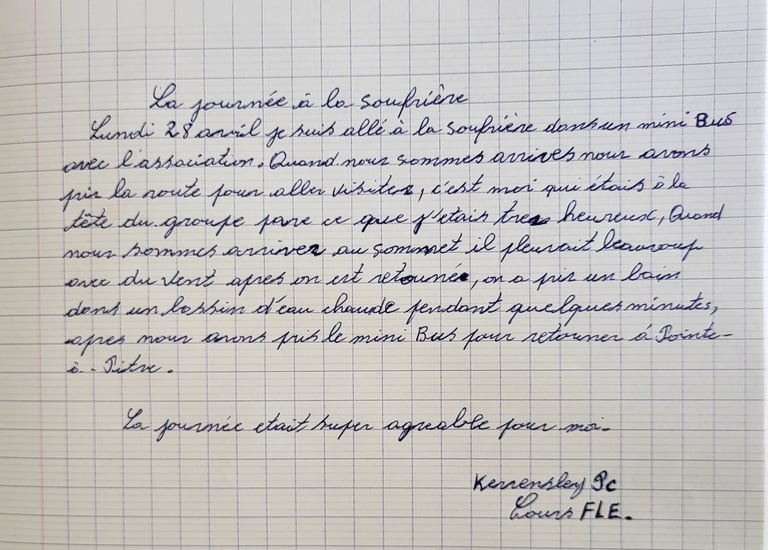 La journée à la soufrière
Lundi 28 avril je suis allé à la soufrière dans un mini Bus
avec l'association. Quand nous sommes arrives nous avons
pris la route pour aller visiter, c'est moi qui étais à la
tête du groupe parce ce que j'etais tres heureux, Quand
nous sommes arriver au sommet il pleuvait beaucoup
avec du vent apres on est retourné, on a pis un bain
dans un bassin d'eau chaude pendant quelques minutes,
apres nous avons pris le mini Bus pour retourner á Pointe-
à-Pitre.
La journée etait super agreable pour moi.
Kerrensley Jc
Cours FLE.